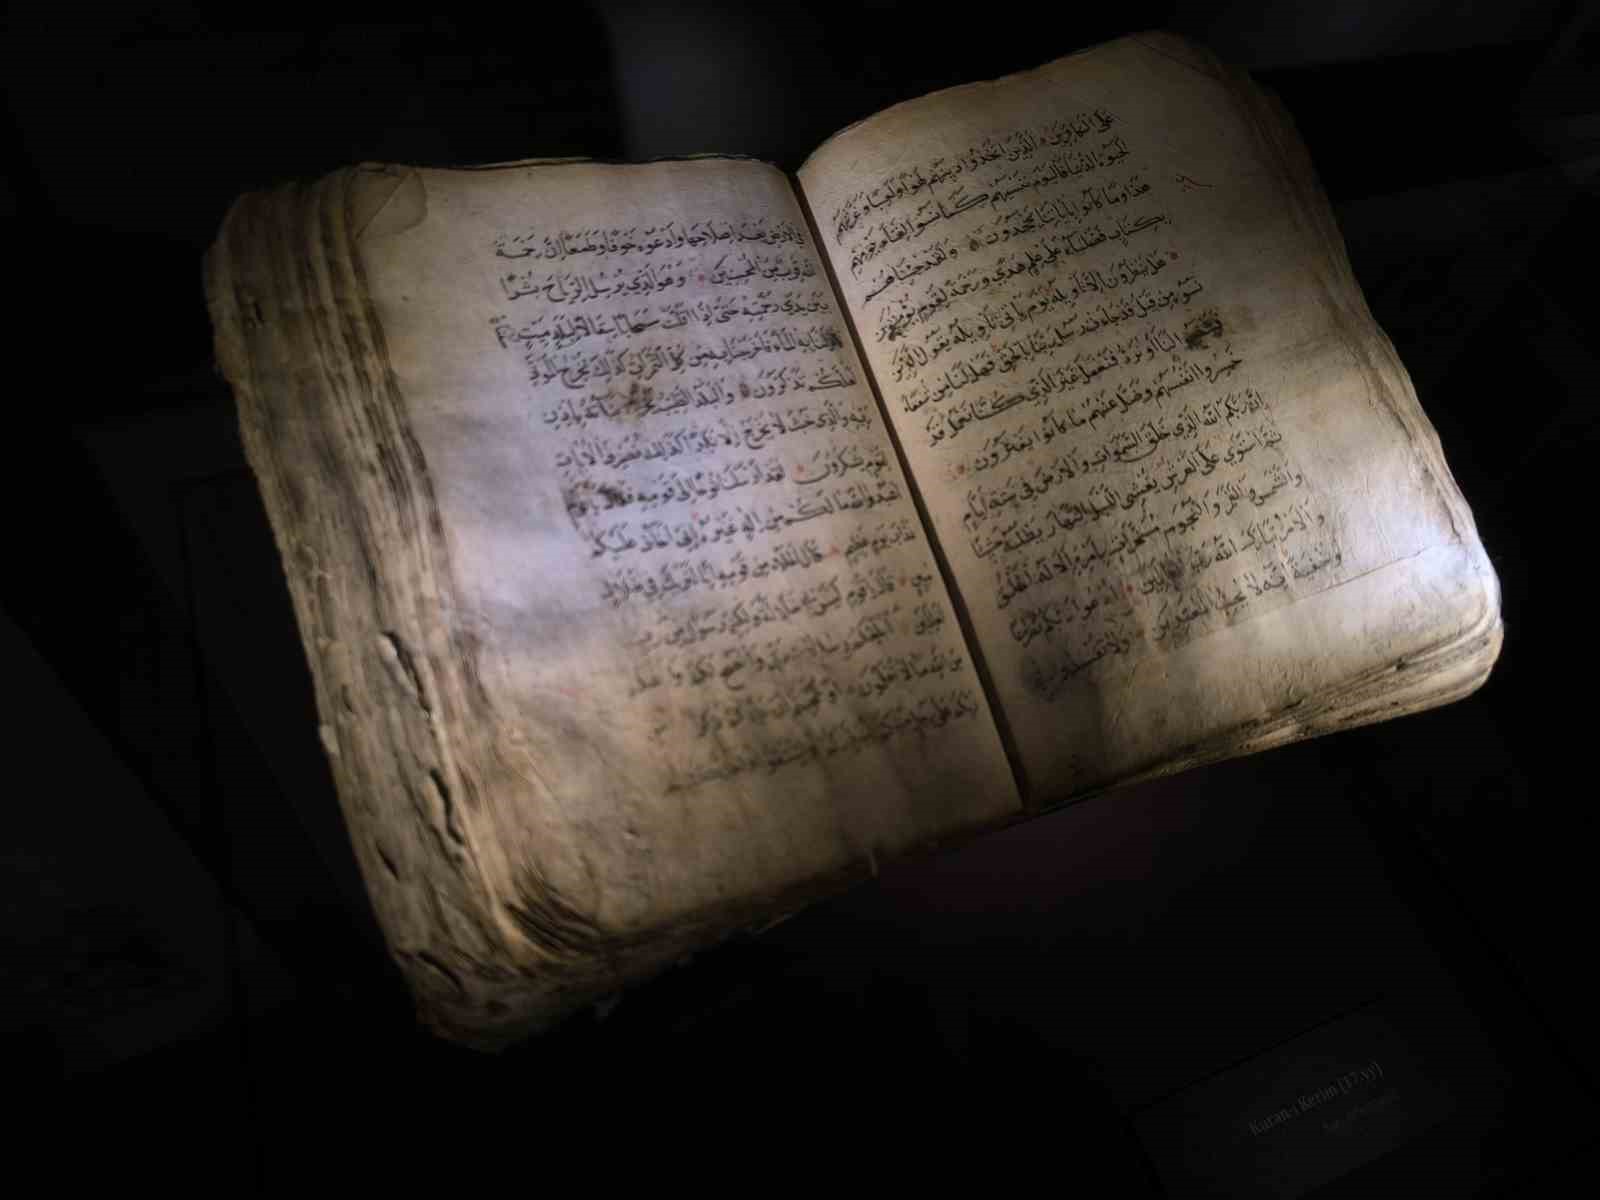 على الكافرين الذين اتخذوا دينهم لهوا ولعبا وغرتهم
الحيوة الدنيا فاليوم ننسيهم كما نسوا لقاء يومهم
هذا وما كانوا باياتنا يجحدون ولقد جئناهم
بكتاب فصلناه على علم هدى ورحمة لقوم يؤمنون
هل ينظرون الا تاويله يوم ياتي تاويله يقول الذين
نسوه من قبل قد جاءت رسل ربنا بالحق فهل لنا من شفعاء
لنا او نرد فنعمل غير الذي كنا نعمل قد
خسروا انفسهم وضل عنهم ما كانوا يفترون
ان ربكم الله الذي خلق السموات والارض في ستة ايام
ثم استوى على العرش يغشي الليل النهار يطلبه حثيثا
والشمس والقمر والنجوم مسخرات بامره الا له الخلق
والامر تبارك الله رب العالمين ادعوا ربكم تضرعا
وخفية انه لا يحب المعتدين ولا تفسدوا
في الارض بعد اصلاحها وادعوه خوفا وطمعا ان رحمة
الله قريب من المحسنين وهو الذي يرسل الرياح بشرا
بين يدي رحمته حتى اذا اقلت سحابا ثقالا لبلد ميت
به الماء فاخرجنا به من كل الثمرات كذلك نخرج الموتى
لعلكم تذكرون والبلد الطيب يخرج نباته باذن
ربه والذي خبث لا يخرج الا نكدا كذلك نصرف الايات
لقوم يشكرون لقد ارسلنا نوحا الى قومه فقال يا قوم
اعبدوا الله ما لكم من اله غيره اني اخاف عليكم
عذاب يوم عظيم قال الملأ من قومه انا لنريك في ضلال
مبين قال يا قوم ليس بي ضلالة ولكني رسول من رب
العالمين ابلغكم رسالات ربي وانصح لكم واعلم
من الله ما لا تعلمون او عجبتم ان جاءكم ذكر
ربكم على رجل منكم
Kuran-ı Kerim (17.yy)